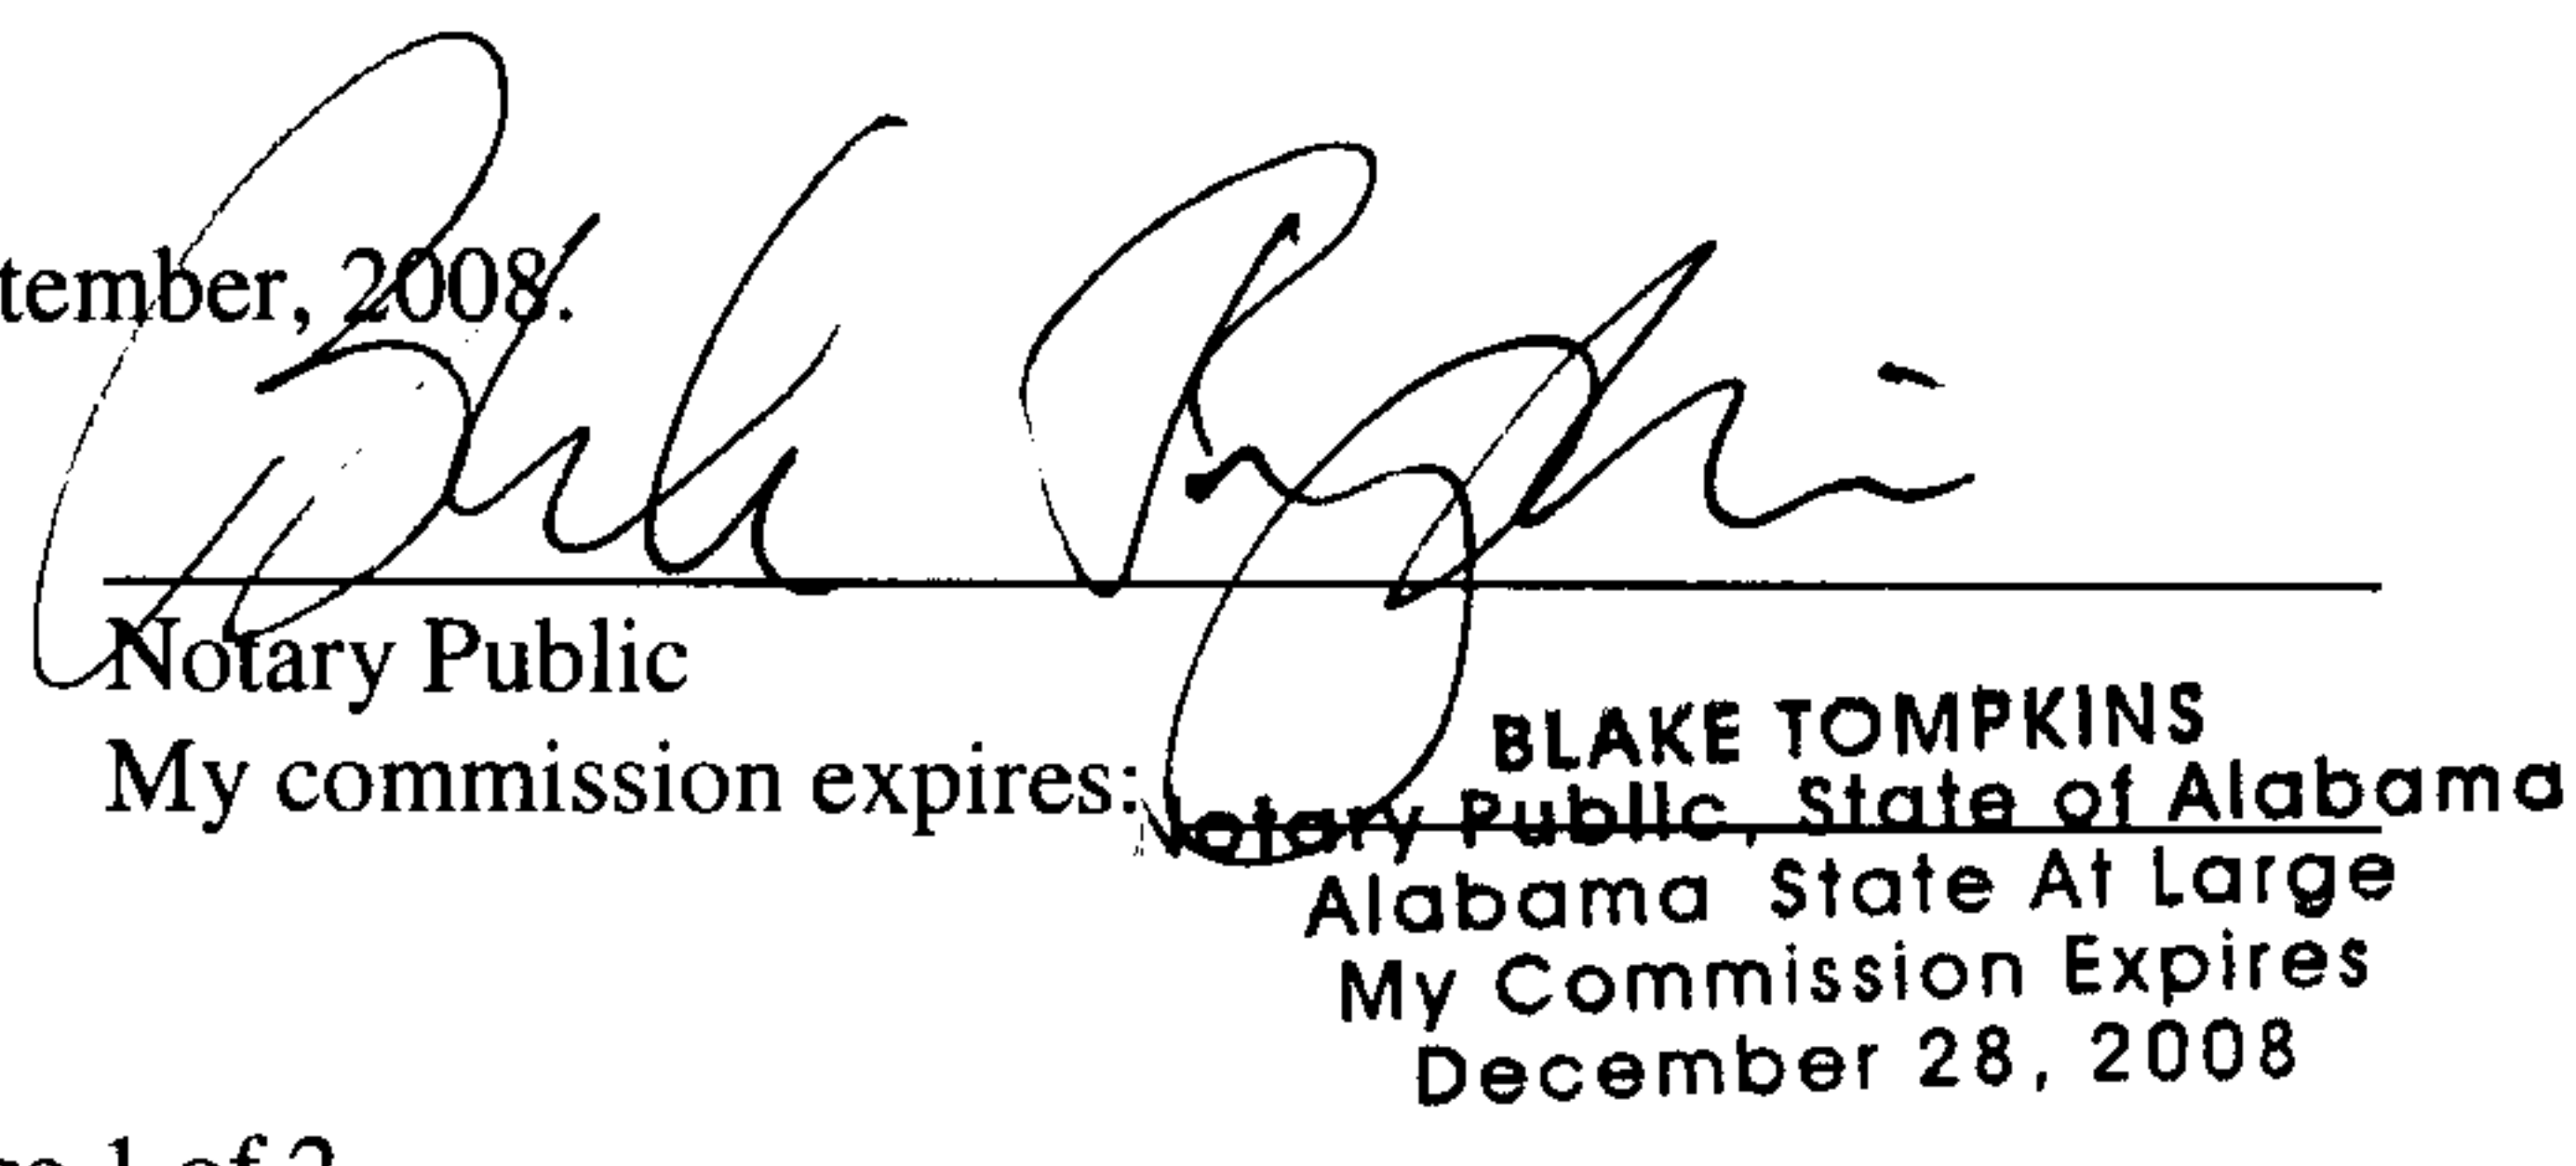 tember, 2008.
Notary Public
My commission expires:
BLAKE TOMPKINS
Notary Public, State of Alabama
Alabama State At Large
My Commission Expires
December 28, 2008
1 of 2